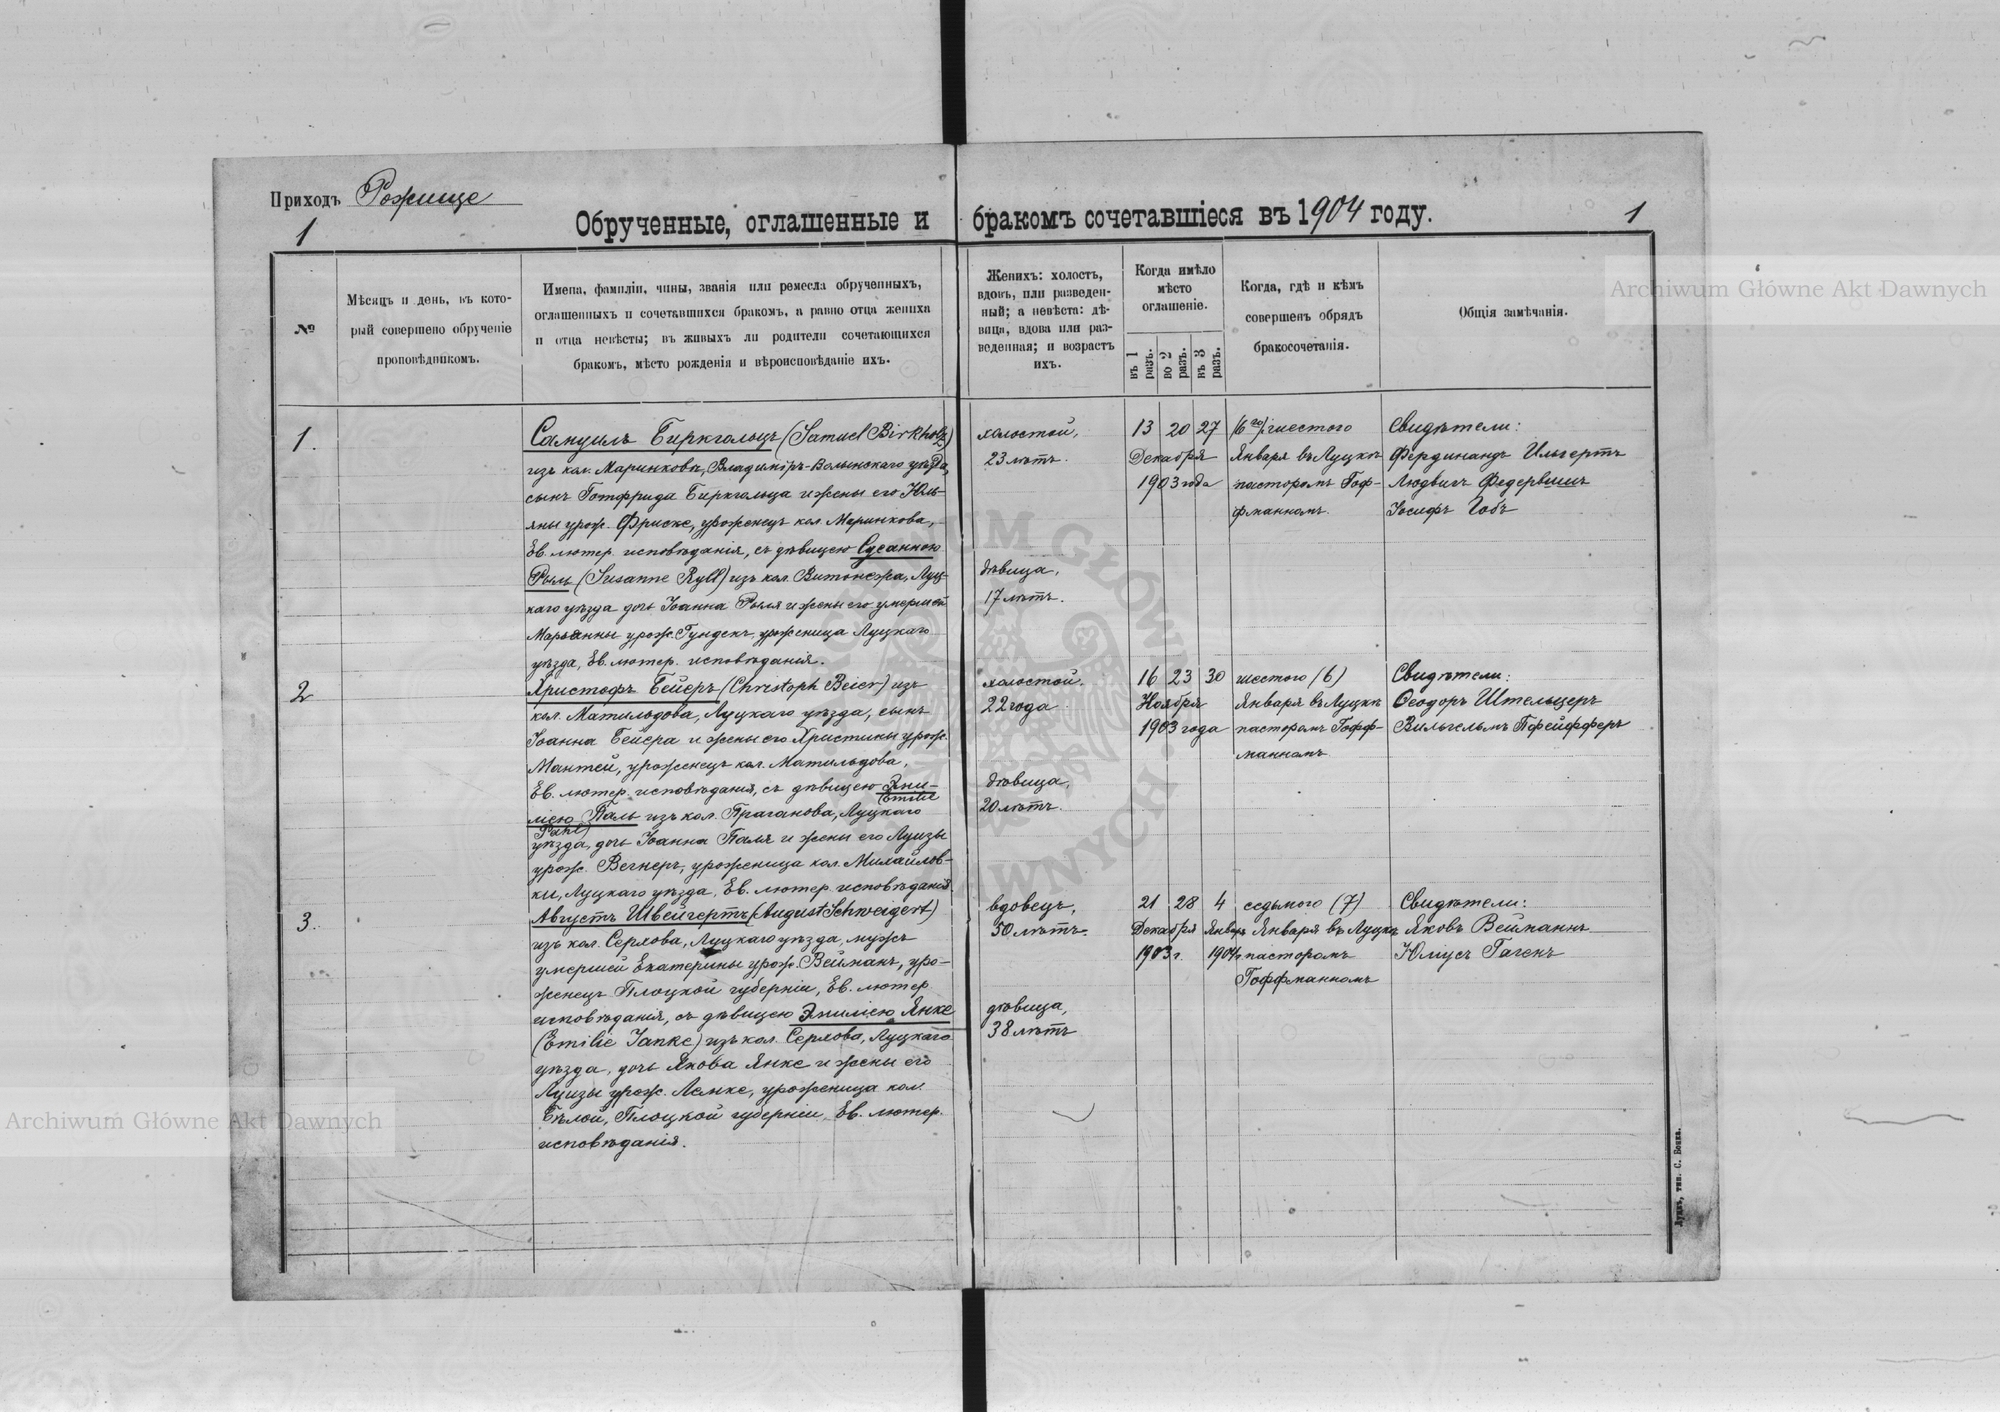 Приходъ Рожище
1
Обрученные, оглашенные и бракомъ сочетавшіеся въ 1904 году.
1
№
Мѣсяцъ и день, въ кото-
рый совершено обрученіе
проповѣдникомъ.
Имена, фамиліи, чины, званія или ремесла обрученныхъ,
оглашенныхъ и сочетавшихся бракомъ, а равно отца жениха
и отца невѣсты; въ живыхъ ли родители сочетающихся
бракомъ, мѣсто рожденія и вѣроисповѣданіе ихъ.
Женихъ: холостъ,
вдовъ, или разведен-
ный; а невѣста: дѣ-
вица, вдова или раз-
веденная; и возрастъ
ихъ.
Когда имѣло
мѣсто
оглашеніе.
въ 1
разъ.
во 2
разъ.
въ 3
разъ.
Когда, гдѣ и кѣмъ
совершенъ обрядъ
бракосочетанія.
Общія замѣчанія.
1.
Самуилъ Биркгольцъ (Samuel Birkholz)
изъ кол. Маринковъ, Владимiръ-Волынскаго уѣзда,
сынъ Готфрида Биркгольца и жены его Юль-
яны урож. Фриске, уроженецъ кол. Маринкова,
Ев. лютер. исповѣданія, съ дѣвицею Сусанною
Рыль (Susanne Ryll) изъ кол. Витонежа, Луц-
каго уѣзда дочь Іоанна Рыля и жены его умершей
Марьянны урож. Гундекъ, уроженица Луцкаго
уѣзда, Ев. лютер. исповѣданія.
холостой,
23 лѣтъ.
дѣвица,
17 лѣтъ.
13 20 27
Декабря
1903 года
(6го) шестого
Января въ Луцкѣ
пасторомъ Гоф-
фманномъ.
Свидѣтели:
Фердинандъ Ильгертъ
Людвигъ Федервишъ
Іосифъ Гобъ
2
Христофъ Бейеръ (Christoph Beier) изъ
кол. Матильдова, Луцкаго уѣзда, сынъ
Іоанна Бейера и жены его Христины урож.
Мантей, уроженецъ кол. Матильдова,
Ев. лютер. исповѣданія, съ дѣвицею Эми-
(Emilie
лiею Паль изъ кол. Праганова, Луцкаго
Pahl)
уѣзда, дочь Іоанна Паля и жены его Луизы
урож. Вегнеръ, уроженица кол. Михайлов-
ки, Луцкаго уѣзда, Ев. лютер. исповѣданія.
холостой.
22 года
дѣвица,
20 лѣтъ.
16 23 30
Ноября
1903 года
шестого (6)
Января въ Луцкѣ
пасторомъ Гофф-
манномъ
Свидѣтели:
Ѳеодоръ Штельцеръ
Вильгельмъ Пфейфферъ
3.
Августъ Швейгертъ (August Schweigert)
изъ кол. Серхова, Луцкаго уѣзда, мужъ
умершей Екатерины урож. Вейманъ, уро-
женецъ Плоцкой губерніи, Ев. лютер
исповѣданія, съ дѣвицею Эмилiею Янке
(Emilie Janke) изъ кол. Серхова, Луцкаго
уѣзда, дочь Якова Янке и жены его
Луизы урож. Лемке, уроженица кол.
Бѣлой, Плоцкой губерніи, Ев. лютер.
исповѣданія.
вдовецъ,
50 лѣтъ.
дѣвица,
38 лѣтъ
21 28 4
Декабря Январь
1903 г. 1904 г.
седьмого (7)
Января въ Луцкѣ
пасторомъ
Гоффманномъ
Свидѣтели:
Яковъ Вейманнъ
Юліусъ Гагенъ
Луцкъ, тип. С. Бонка.
Archiwum Główne Akt Dawnych
Archiwum Główne Akt Dawnych